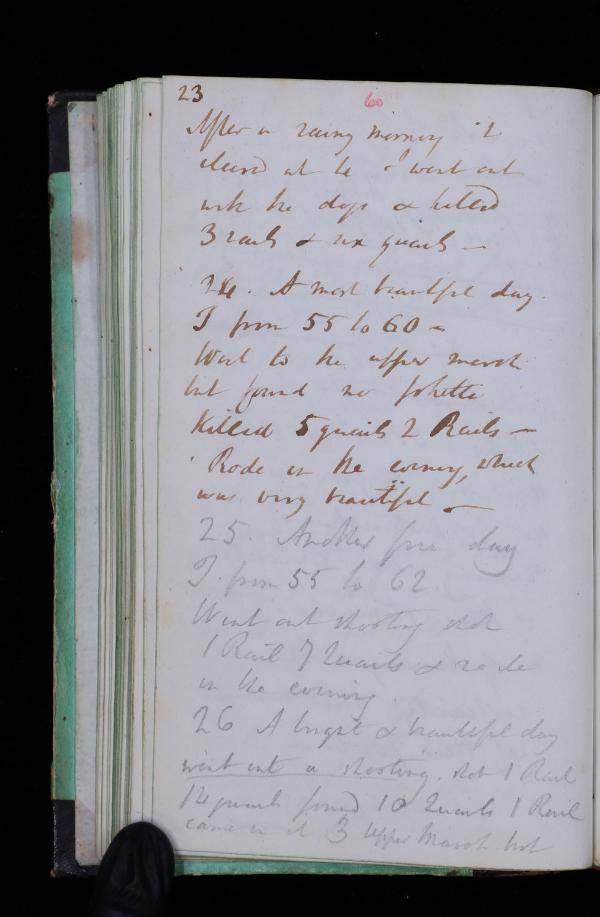 23
60
After a rainy morning it
cleared at 12 & I went out
with the dogs & killed
3 rails & six quails —
24. A most beautiful day.
T from 55 to 60 —
Went to the upper marsh
but found no
Killed 5 quails 2 Rails —
Rode in the evening, which
was very beautiful —
25. Another fine day
T. from 55 to 62
Went out shooting shot
1 Rail 7 Quails & rode
in the evening.
26 A bright & beautiful day
went out a shooting. shot 1 Rail
quails found 10 Quails 1 Rail
came in at 3 Upper Marsh but